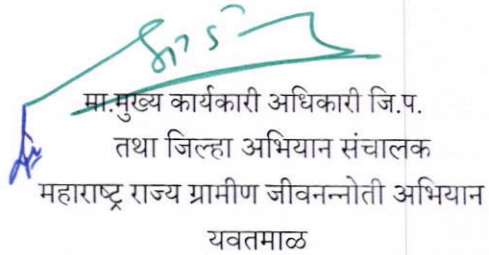 मा.मुख्य कार्यकारी अधिकारी जि.प.
तथा जिल्हा अभियान संचालक
महाराष्ट्र राज्य ग्रामीण जीवनन्नोती अभियान
यवतमाळ